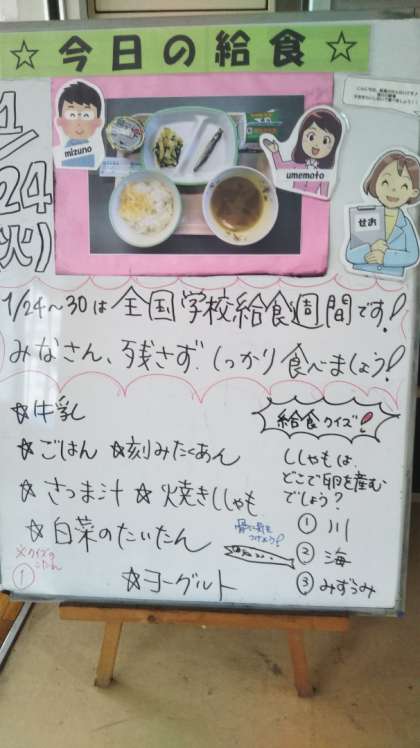 ☆今日の給食☆
1/24(火)
mizuno
umemoto
せお
1/24～30は全国学校給食週間です!
みなさん、残さずしっかり食べましょう!
☆牛乳
☆ごはん ☆刻みたくあん
☆さつま汁 ☆焼きししゃも
☆白菜のたいたん
☆ヨーグルト
給食クイズ!
ししゃもは、
どこで卵を産む
でしょう?
① 川
② 海
③ みずうみ
※クイズの
こたえ
①